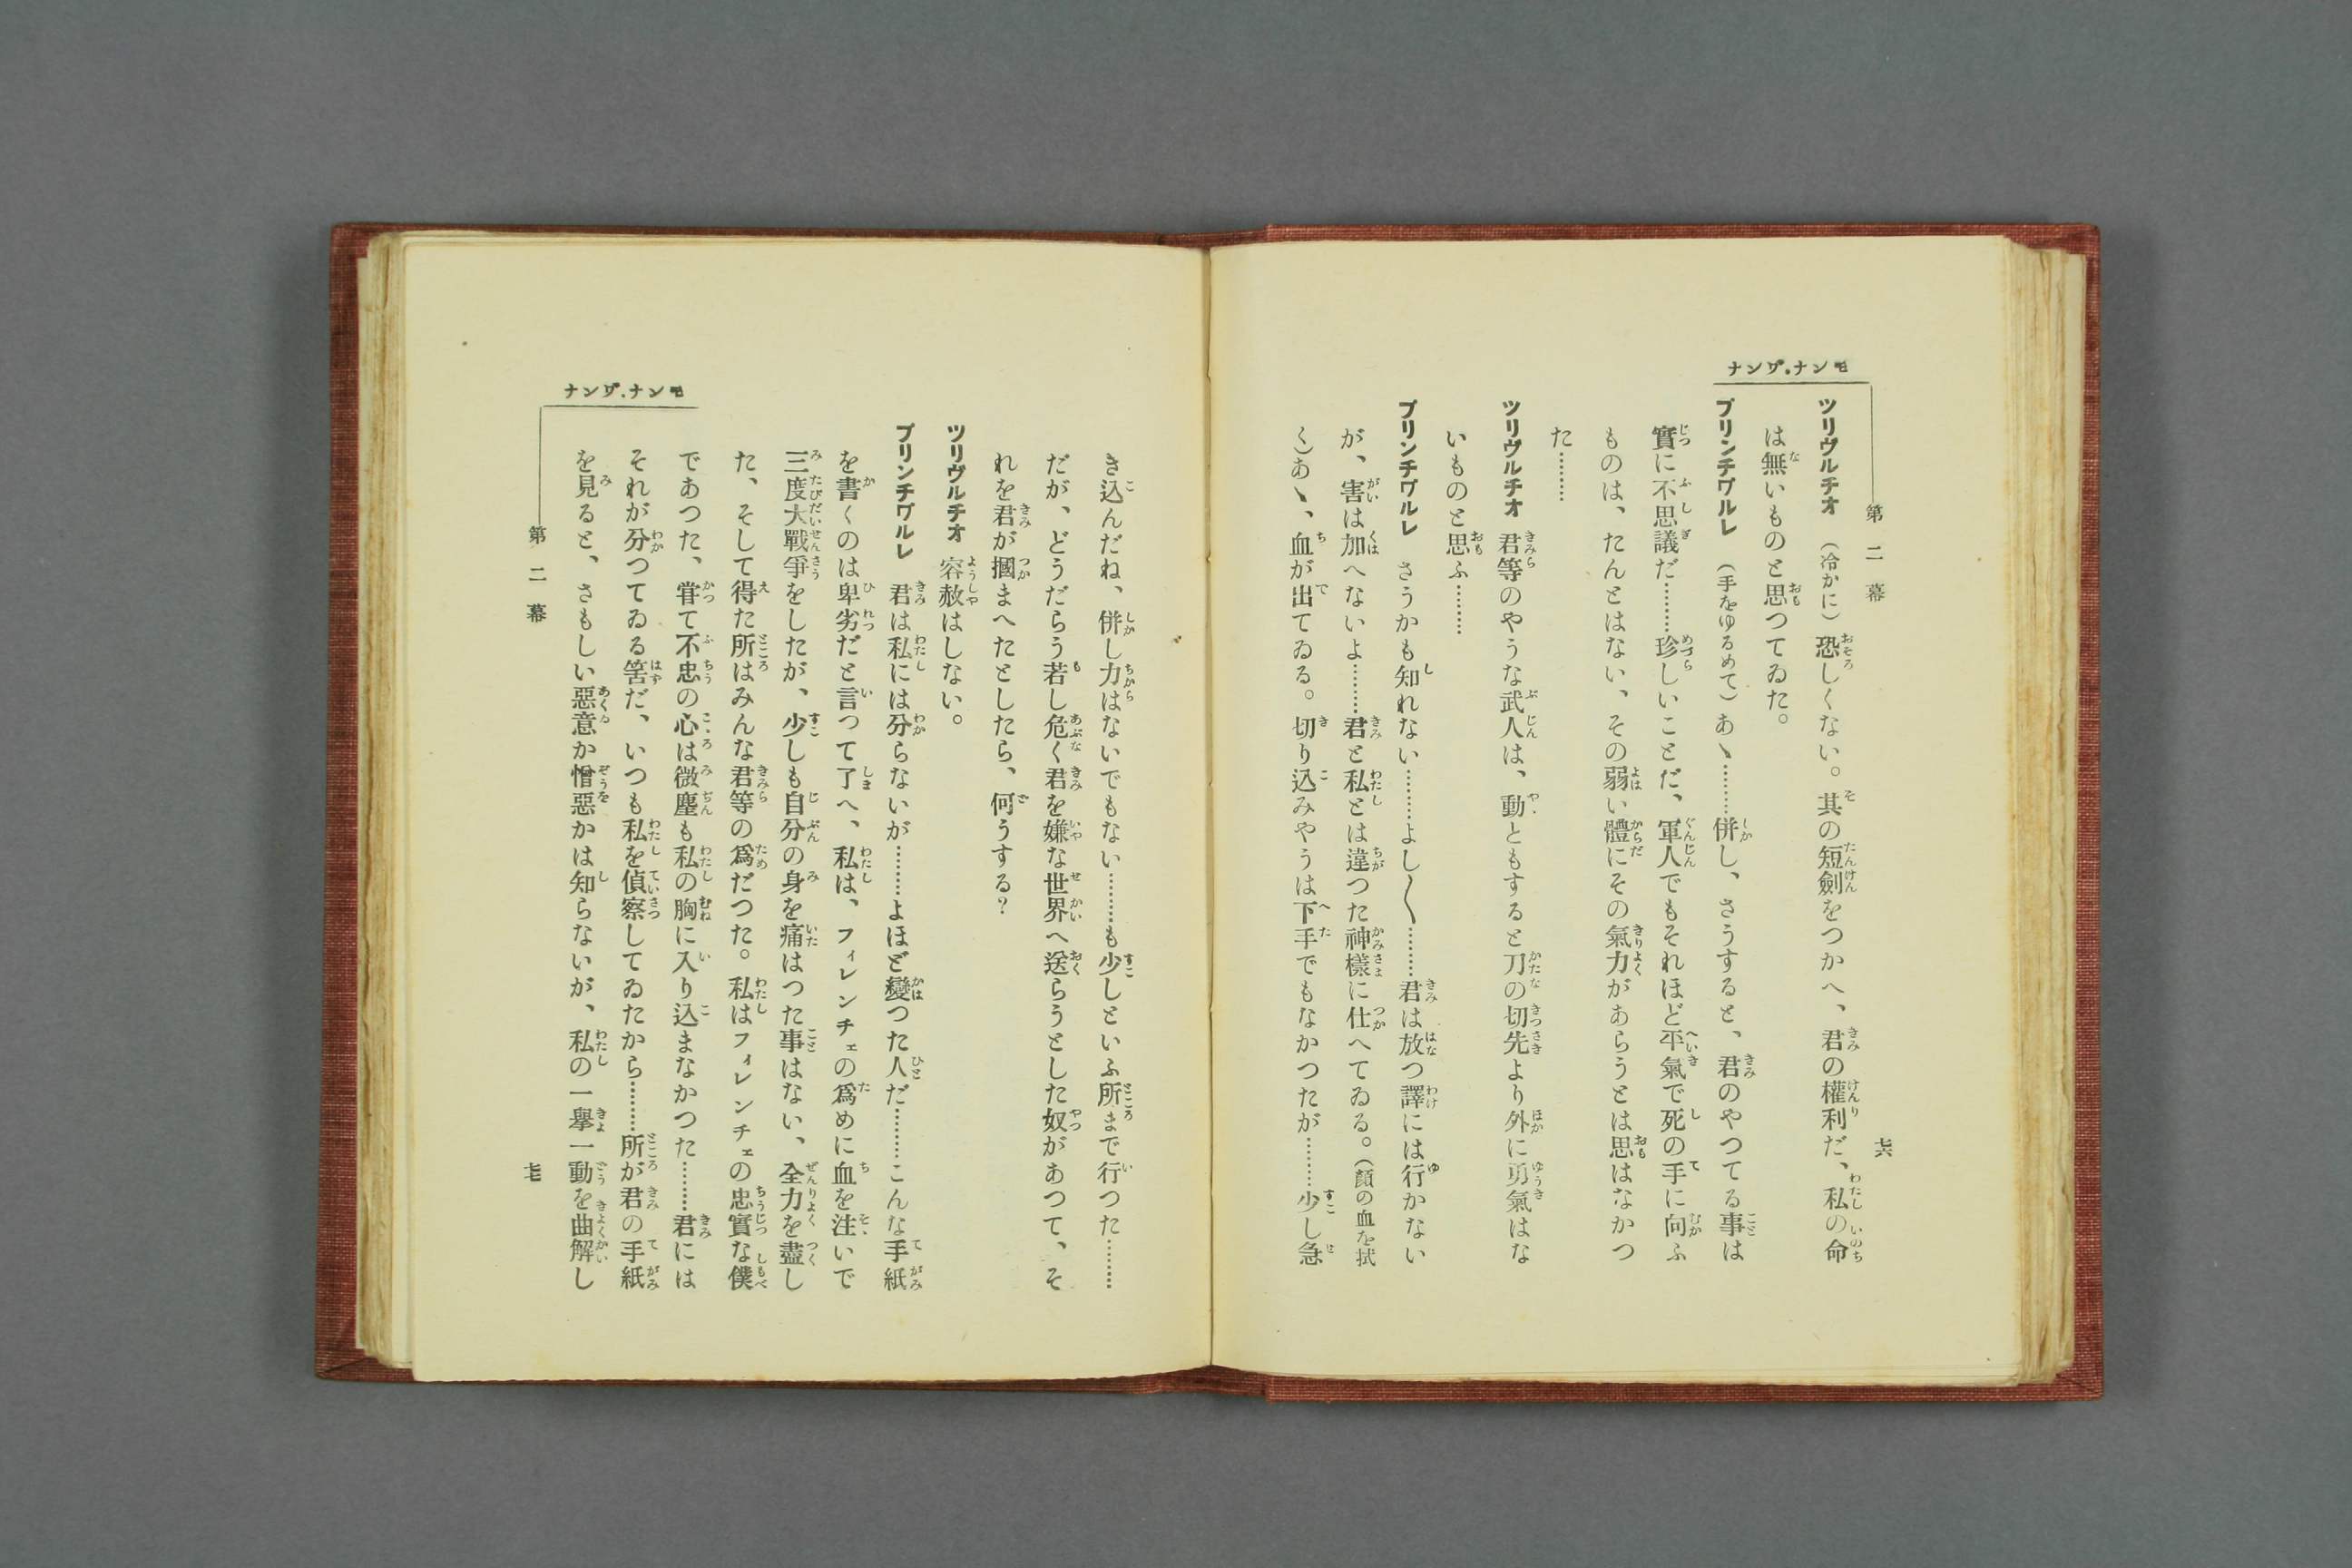 モンナ・ヷンナ
第二幕
七六
ツリヴルチオ (冷かに)恐しくない。其の短劍をつかへ、君の權利だ、私の命
は無いものと思つてゐた。
プリンチヷルレ (手をゆるめて)あゝ………併し、さうすると、君のやつてる事は
實に不思議だ………珍しいことだ、軍人でもそれほど平氣で死の手に向ふ
ものは、たんとはない、その弱い體にその氣力があらうとは思はなかつ
た………
ツリヴルチオ 君等のやうな武人は、動ともすると刀の切先より外に勇氣はな
いものと思ふ………
プリンチヷルレ さうかも知れない………よし〳〵………君は放つ譯には行かない
が、害は加へないよ………君と私とは違つた神樣に仕へてゐる。(顏の血を拭
く)あゝ、血が出てゐる。切り込みやうは下手でもなかつたが………少し急
き込んだね、併し力はないでもない………も少しといふ所まで行つた………
だが、どうだらう若し危く君を嫌な世界へ送らうとした奴があつて、そ
れを君が摑まへたとしたら、何うする?
ツリヴルチオ 容赦はしない。
プリンチヷルレ 君は私には分らないが………よほど變つた人だ………こんな手紙
を書くのは卑劣だと言つて了へ、私は、フィレンチェの爲めに血を注いで
三度大戰爭をしたが、少しも自分の身を痛はつた事はない、全力を盡し
た、そして得た所はみんな君等の爲だつた。私はフィレンチェの忠實な僕
であつた、甞て不忠の心は微塵も私の胸に入り込まなかつた………君には
それが分つてゐる筈だ、いつも私を偵察してゐたから………所が君の手紙
を見ると、さもしい惡意か憎惡かは知らないが、私の一擧一動を曲解し
モンナ・ヷンナ
第二幕
七七